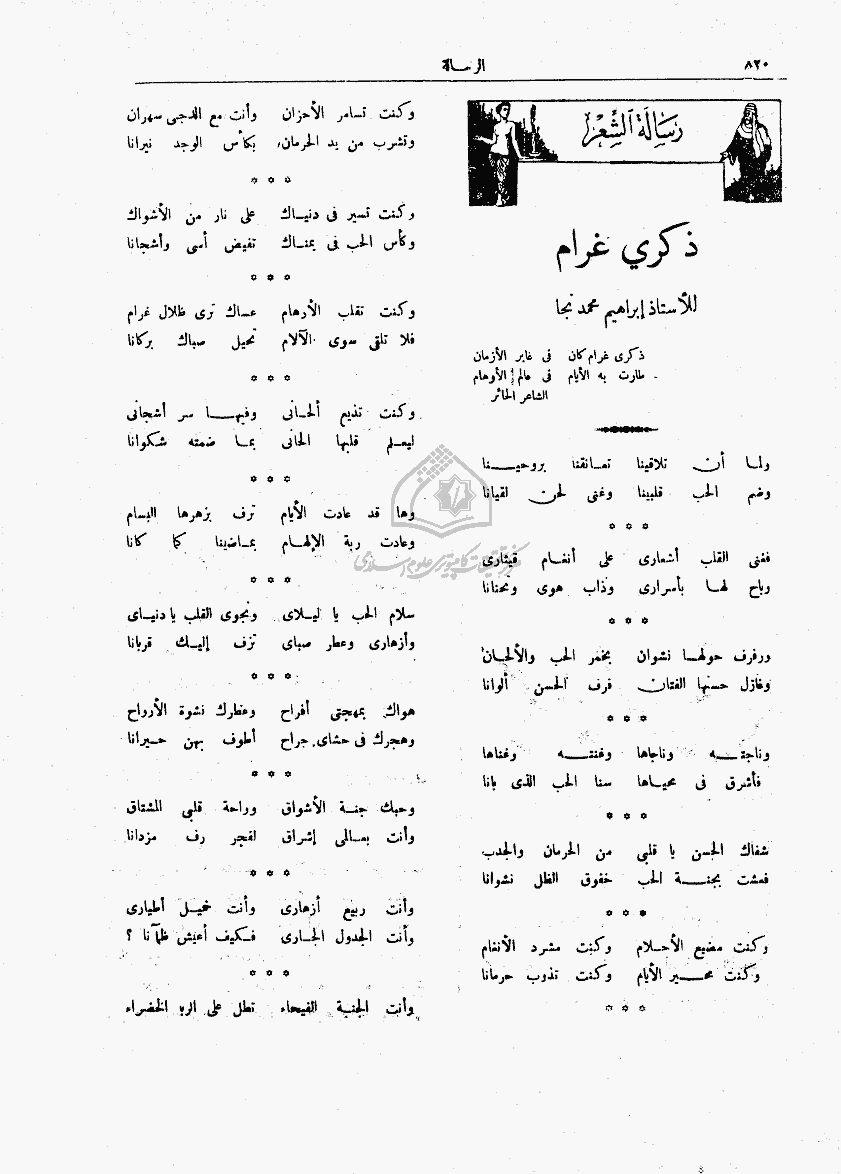 ٨٢٠
الرسالة
رسالة الشعر
ذكرى غرام
للأستاذ إبراهيم محمد نجا
ذكرى غرام كان في غابر الأزمان
طارت به الأيام في عالم الأوهام
الشاعر الحائر
ولما أن تلاقينا تعانقنا بروحينا
وضم الحب قلبينا وغنى لحن لقيانا
* * *
فغنى القلب أشعارى على أنغام قيثارى
وباح لها بأسرارى وذاب هوى وتحنانا
* * *
ورفرف حولها نشوان بخمر الحب والألحان
وغازل حسنها الفتان فرف الحسن ألوانا
* * *
وناجته وناجاها وغنته وغناها
فأشرق في محياها سنا الحب الذي بانا
* * *
شفاك الحسن يا قلبي من الحرمان والجدب
فعشت بجنة الحب خفوق الظل نشوانا
* * *
وكنت مضيع الأحلام وكنت مشرد الأنغام
وكنت محير الأيام وكنت تذوب حرمانا
* * *
وكنت تسامر الأحزان وأنت مع الدجى سهران
وتشرب من يد الحرمان، بكأس الوجد نيرانا
* * *
وكنت تسير في دنياك على نار من الأشواك
وكأس الحب في يمناك تفيض أسى وأشجانا
* * *
وكنت تقلب الأوهام عساك ترى ظلال غرام
فلا تلقى سوى الآلام تحيل صباك بركانا
* * *
وكنت تذيع ألحانى وفيها سر أشجانى
ليعلم قلبها الحانى بما ضمته شكوانا
* * *
وها قد عادت الأيام ترف بزهرها البسام
وعادت ربة الإلهام بماضينا كما كانا
* * *
سلام الحب يا ليلاى ونجوى القلب يا دنياى
وأزهارى وعطر صباى تزف إليك قربانا
* * *
هواك بمهجتي أفراح وعطرك نشوة الأرواح
وهجرك في حشاى جراح أطوف بهن حيرانا
* * *
وحبك جنة الأشواق وراحة قلبي المشتاق
وأنت بعالمى إشراق لفجر رف مزدانا
* * *
وأنت ربيع أزهارى وأنت خميل أطيارى
وأنت الجدول الجارى فكيف أعيش ظمآنا ؟
* * *
وأنت الجنة الفيحاء تطل على الربا الخضراء
مركز تحقيقات كامپيوترى علوم اسلامى